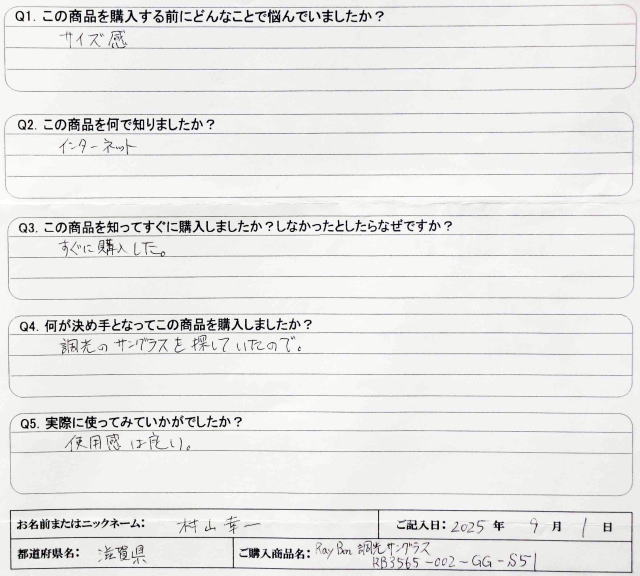 Q1. この商品を購入する前にどんなことで悩んでいましたか？
サイズ感
Q2. この商品を何で知りましたか？
インターネット
Q3. この商品を知ってすぐに購入しましたか？しなかったとしたらなぜですか？
すぐに購入した。
Q4. 何が決め手となってこの商品を購入しましたか？
調光のサングラスを探していたので。
Q5. 実際に使ってみていかがでしたか？
使用感は良い。
お名前またはニックネーム： 村山幸一 ご記入日：2025 年 9 月 1 日
都道府県名： 滋賀県 ご購入商品名： Ray Ban 調光サングラス
RB3565-002-GG-S51